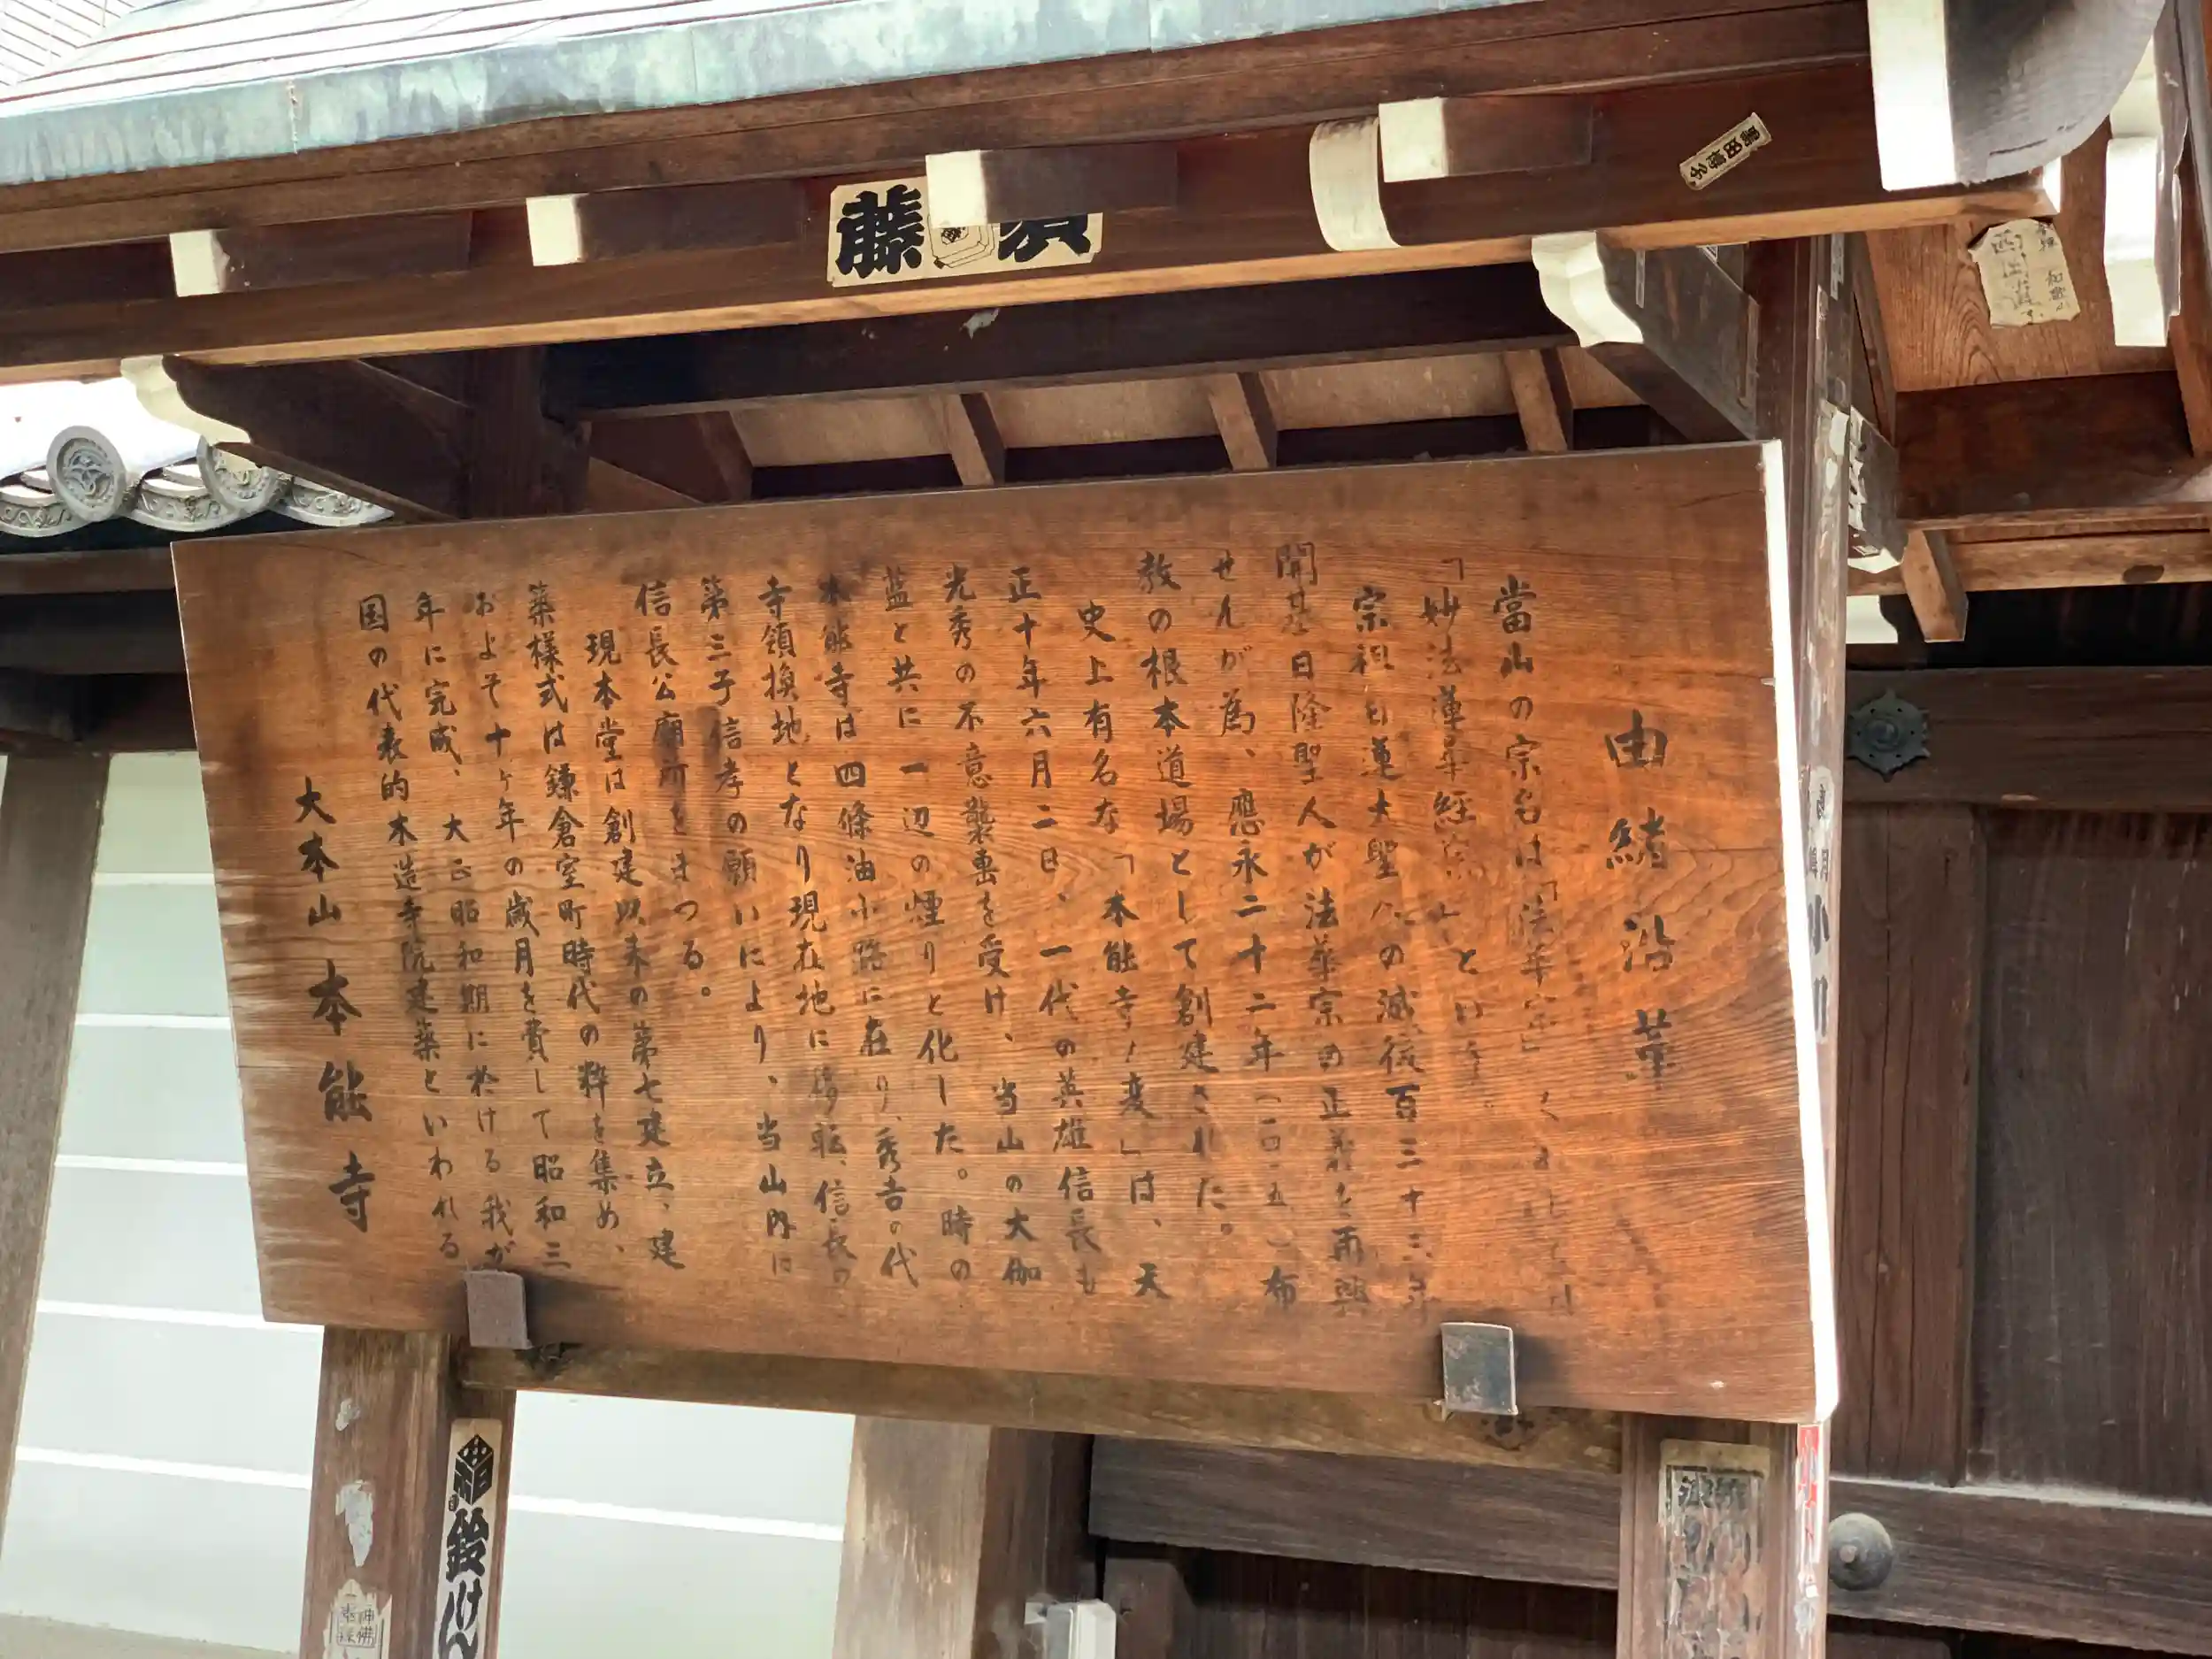 由緒沿革
當山の宗名は「法華宗」くわしくは
「妙法蓮華経宗」という。
宗祖日蓮大聖人の滅後百三十三年
開基日隆聖人が法華宗の正義を再興
せんが為、應永二十二年(一四一五)布
教の根本道場として創建された。
史上有名な「本能寺ノ変」は、天
正十年六月二日、一代の英雄信長も
光秀の不意襲撃を受け、当山の大伽
藍と共に一辺の煙りと化した。時の
本能寺は四條油小路に在り、秀吉の代
寺領換地となり現在地に移転、信長の
第三子信孝の願いにより、当山内に
信長公廟所をまつる。
現本堂は創建以来の第七建立、建
築様式は鎌倉室町時代の粋を集め、
およそ十ヶ年の歳月を費して昭和三
年に完成、大正昭和期に於ける我が
国の代表的木造寺院建築といわれる
大本山 本能寺
藤
黒田博子
小川
鈴けん
神佛